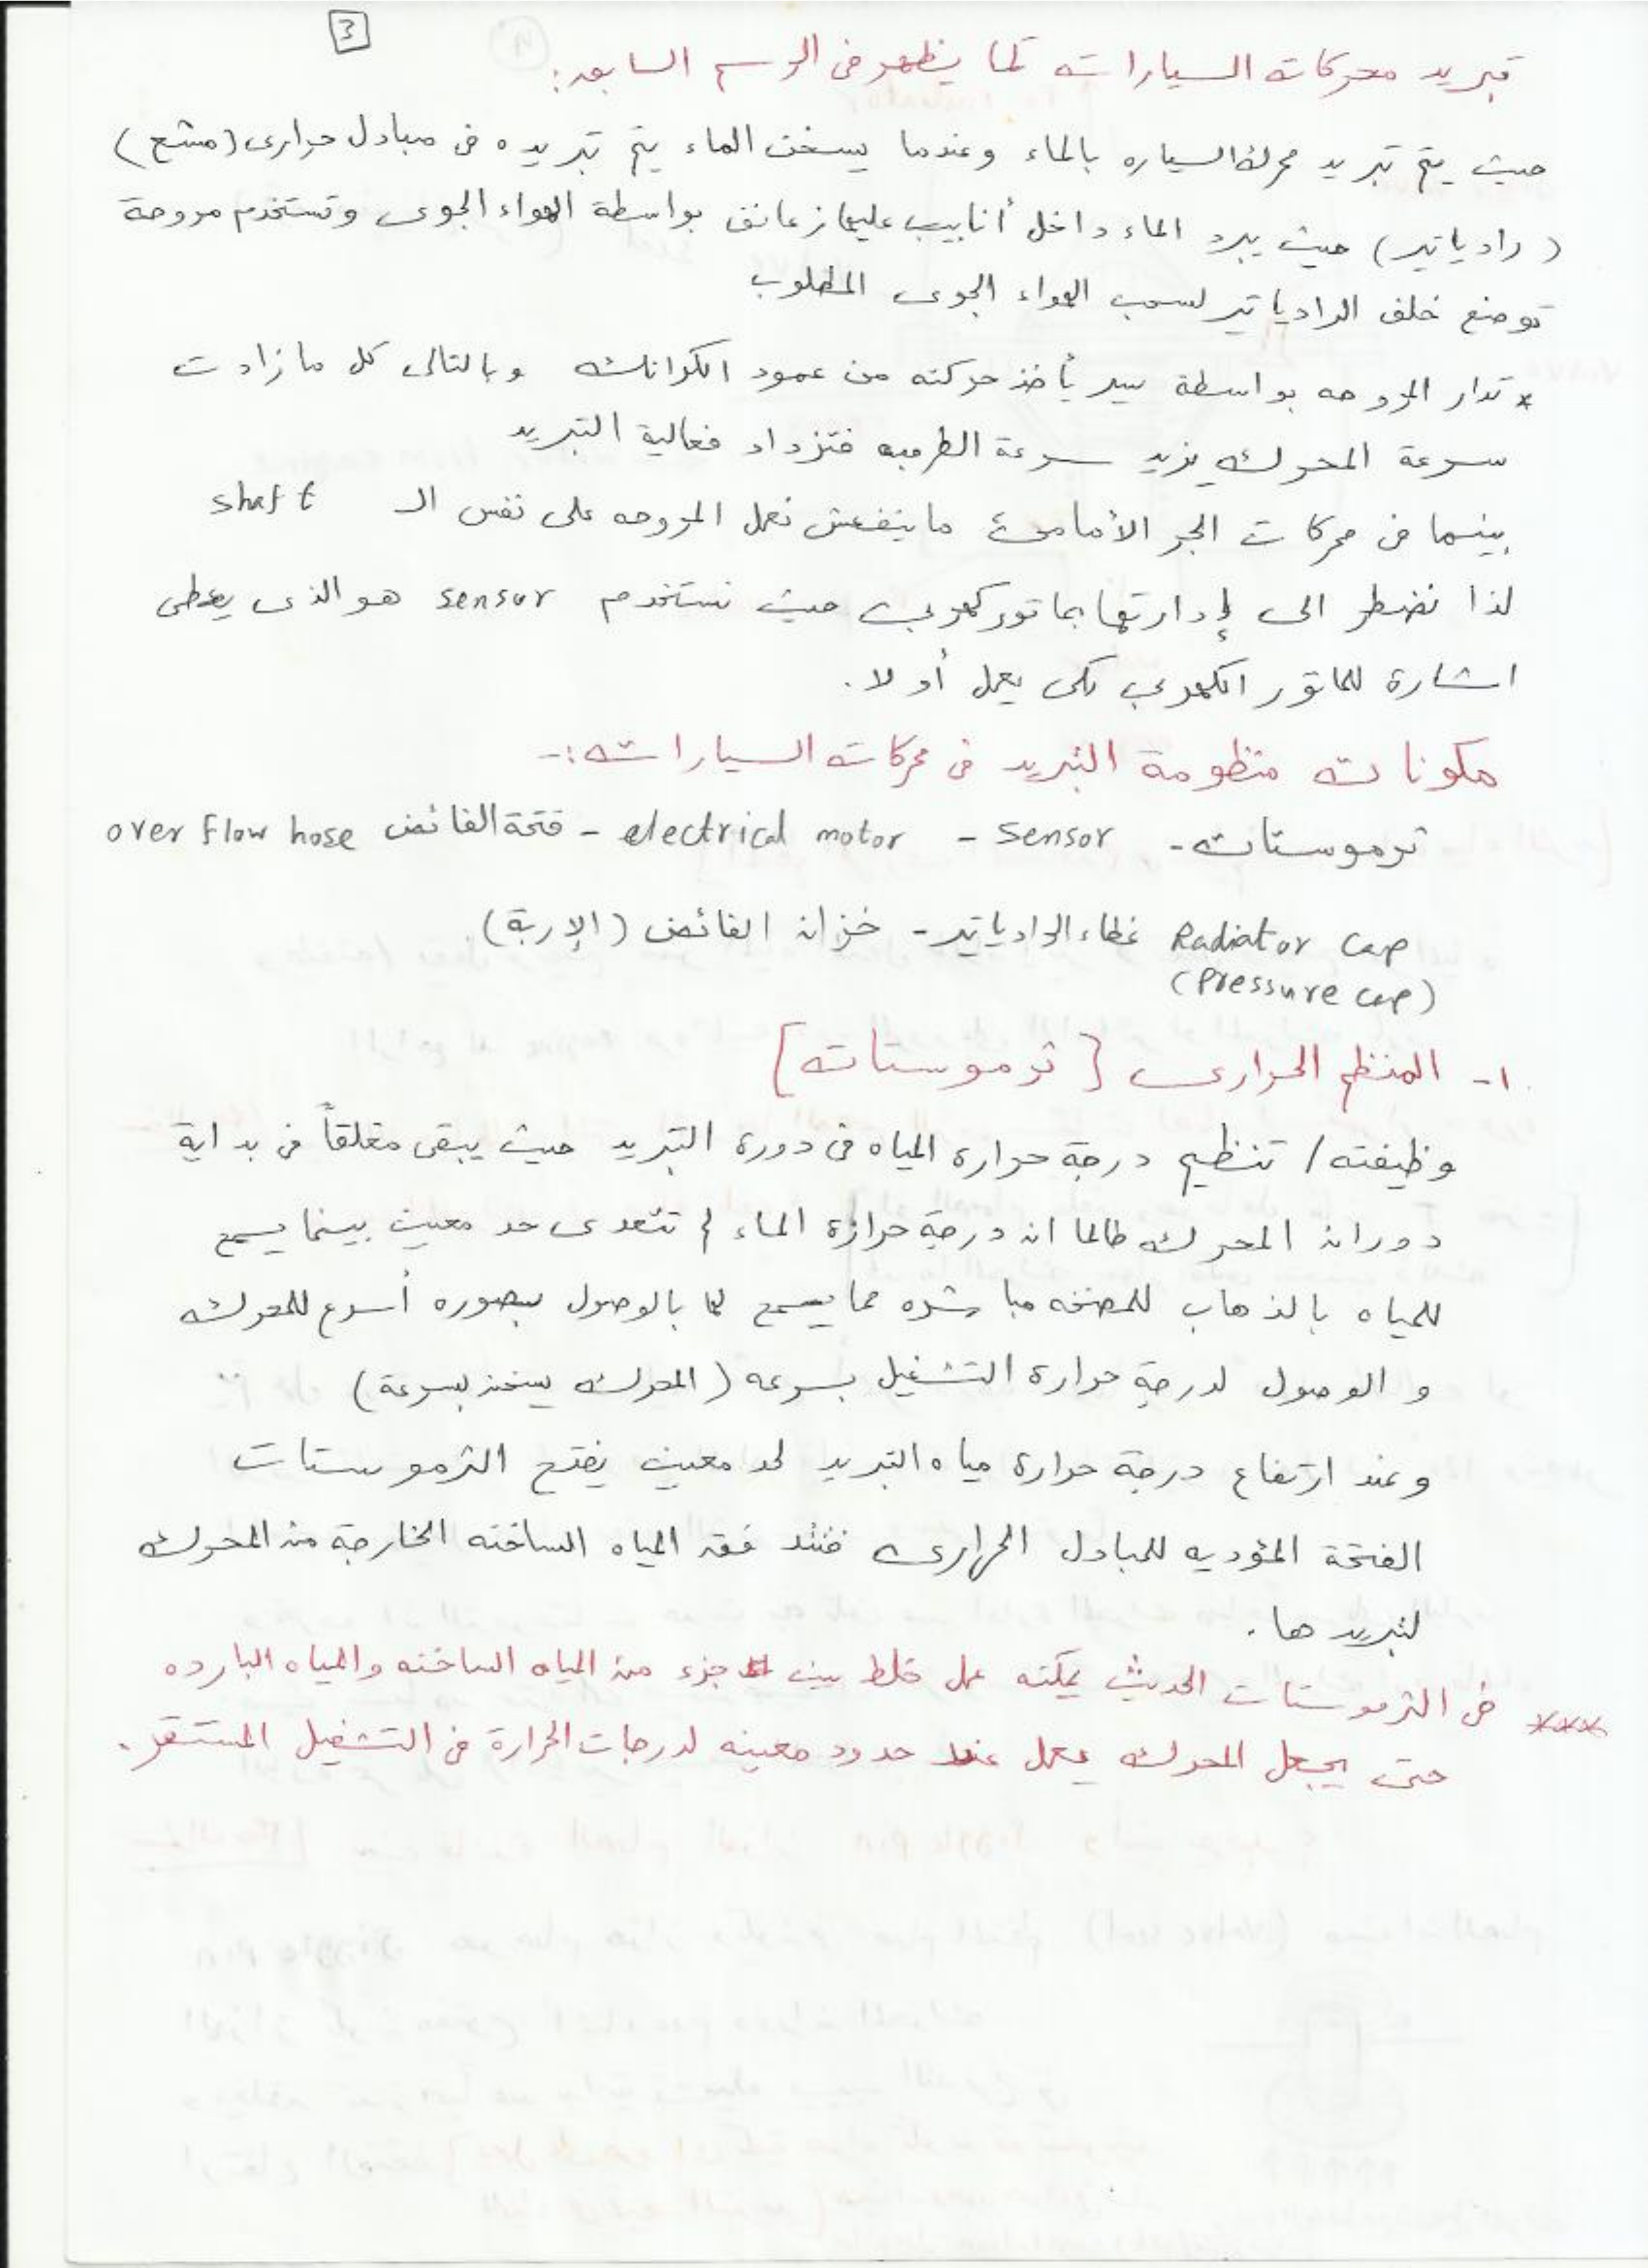 3
تبريد محركات السيارات كما يظهر فى الرسم السابق:
حيث يتم تبريد محرك السياره بالماء وعندما يسخن الماء يتم تبريده فى مبادل حرارى (مشع)
(رادياتير) حيث يبرد الماء داخل أنابيب عليها زعانف بواسطة الهواء الجوى وتستخدم مروحة
توضع خلف الرادياتير لسحب الهواء الجوى المطلوب
* تدار المروحه بواسطة سير يأخذ حركته من عمود الكرانك وبالتالى كل ما زادت
سرعة المحرك يزيد سرعة الطرمبه فتزداد فعالية التبريد
بينما فى محركات الجر الأمامى ما ينفعش نعمل المروحه على نفس الـ shaft
لذا نضطر الى إدارتها بماتور كهربى حيث نستخدم sensor هو الذى يعطى
اشارة للماتور الكهربى لكى يعمل أو لا.
مكونات منظومة التبريد فى محركات السيارات:-
ترموستات - sensor - electrical motor - فتحة الفائض over flow hose
Radiator cap غطاء الرادياتير - خزان الفائض (الإربة)
(Pressure cap)
١- المنظم الحرارى [ثرموستات]
وظيفته/ تنظيم درجة حرارة المياه فى دورة التبريد حيث يبقى مغلقاً فى بداية
دوران المحرك طالما ان درجة حرارة الماء لم تتعدى حد معين بينما يسمح
للمياه بالذهاب للمضخه مباشره مما يسمح لها بالوصول بصوره أسرع للمحرك
و الوصول لدرجة حرارة التشغيل بسرعه (المحرك يسخن بسرعة)
وعند ارتفاع درجة حرارة مياه التبريد لحد معين يفتح الثرموستات
الفتحة المؤديه للمبادل الحرارى فتتدفق المياه الساخنه الخارجة من المحرك
لتبريدها.
*** فى الثرموستات الحديث يمكنه عمل خلط بين جزء من المياه الساخنه والمياه البارده
حتى يجعل المحرك يعمل عند حدود معينه لدرجات الحرارة فى التشغيل المستقر.